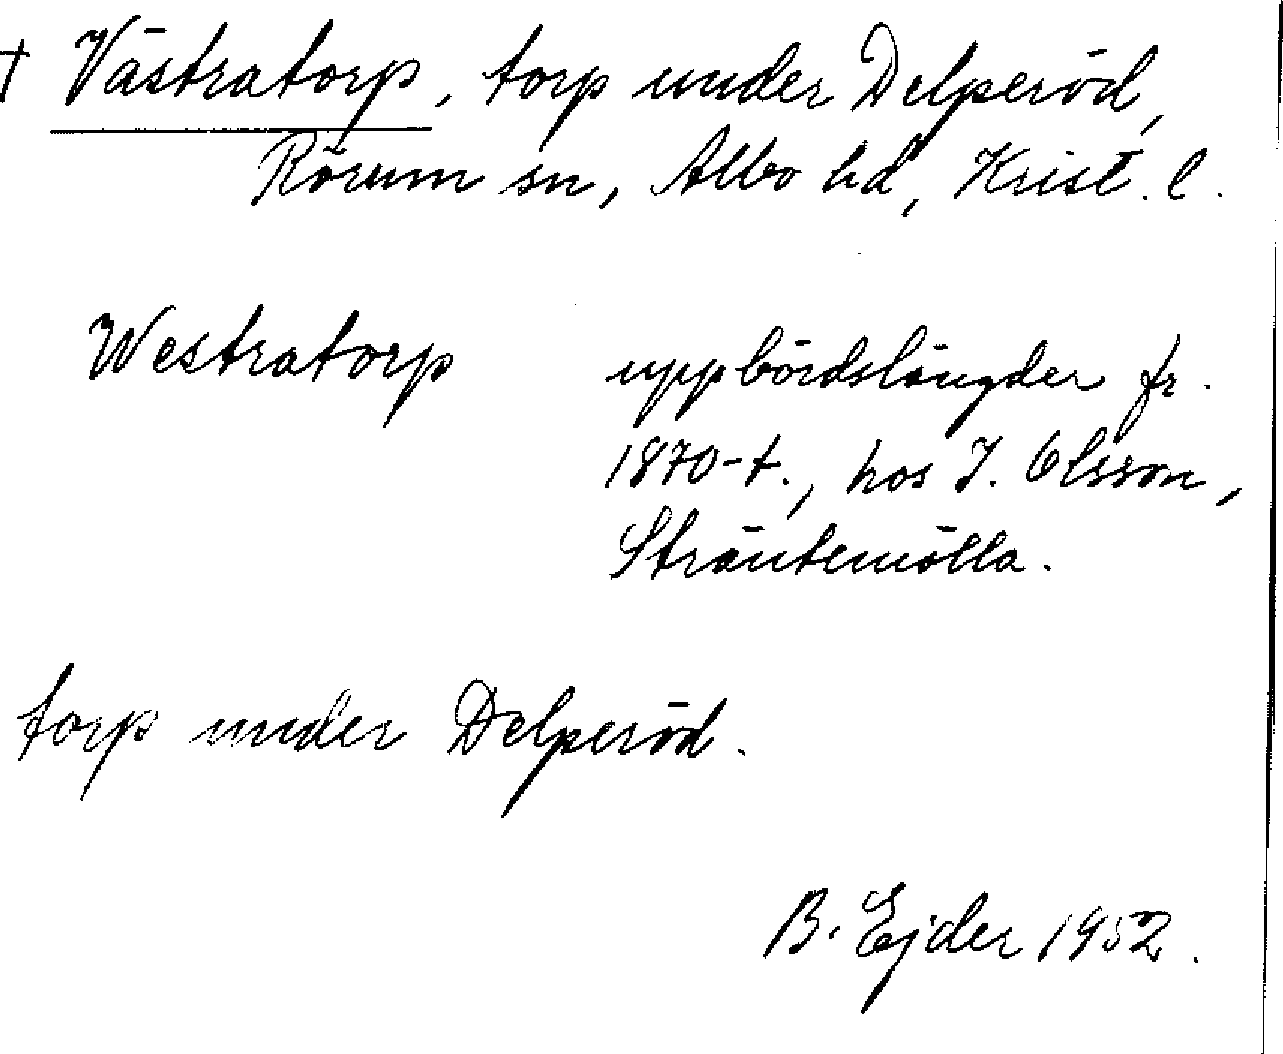 † Västratorp, torp under Delperöd,
Rörum sn, Albo hd, Krist. l.
Westratorp uppbördslängder fr.
1870-t., hos J. Olsson,
Sträntemölla.
torp under Delperöd.
B. Ejder 1952.